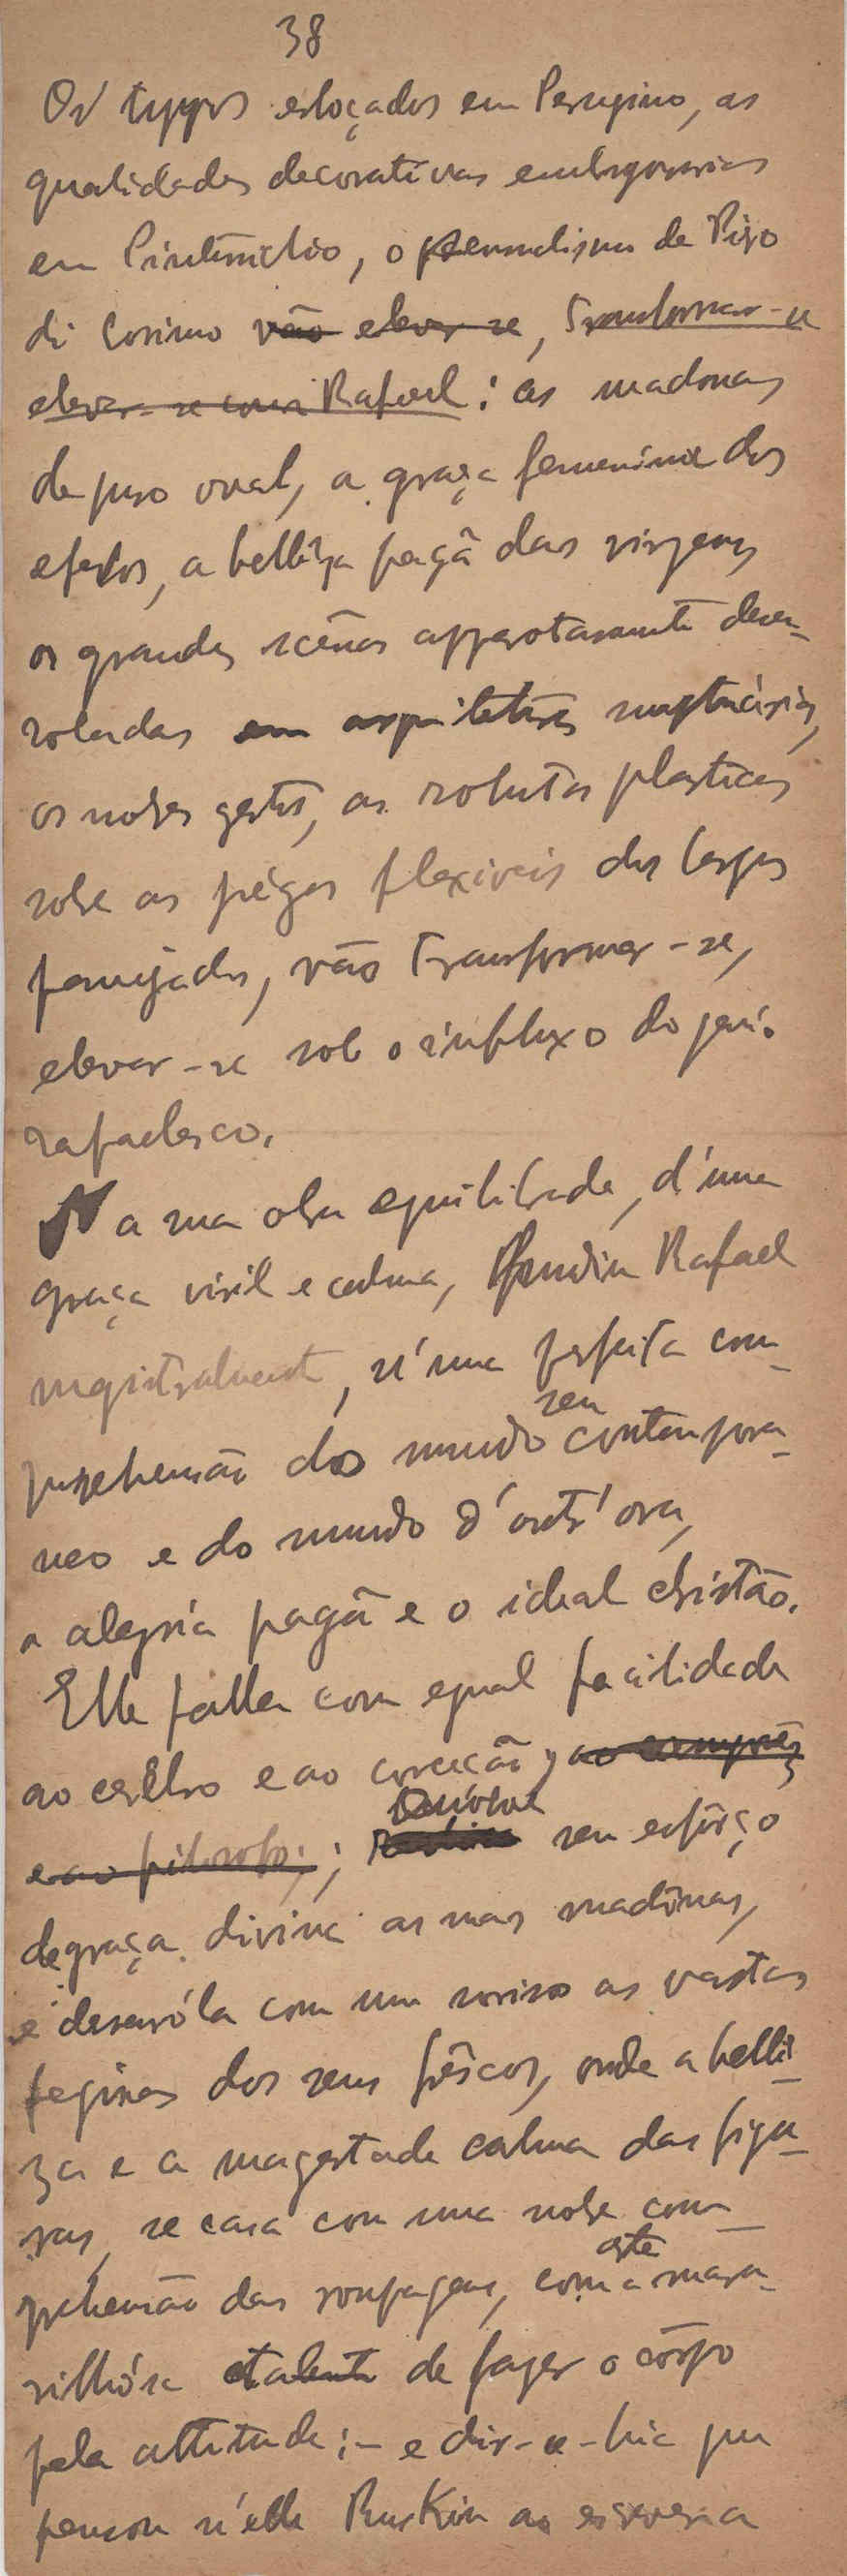 38
Os typos esboçados em Perugino, as
qualidades decorativas embryonarias
em Pinturichio, o sensualismo de Piero
di Cosimo vão elevar-se, transformar-se
elevar-se com Rafael: as madonas
de puro oval, a graça femenina dos
efebos, a belleza pagã das virgens
as grandes scenas apparatosamente desen-
roladas em arquiteturas sumptuárias,
os nobres gestos, as robustas plasticas
sobre as prégas flexiveis dos largos
panejados, vão transformar-se,
elevar-se sob o influxo do genio
rafaelesco.
Na sua obra equilibrada, d'uma
graça viril e calma, fundiu Rafael
magistralmente, n'uma perfeita com-
prehensão do mundo seu contempora-
neo e do mundo d'outr'ora,
a alegria pagã e o ideal christão.
Elle falla com egual facilidade
ao cerebro e ao coração, ao
e ao filosofo; ; seu esfôrço
de graça divina as suas madonas,
e desenróla com um soriso as vastas
paginas dos seus frescos, onde a belle-
za e a magestade calma das figu-
ras, se casa com uma nobre com-
prehensão das roupagens, com a arte mara-
vilhósa talento de fazer o côrpo
pela attitude; – e dir-se-hia que
pensou n'elle Ruskin ao escrever a